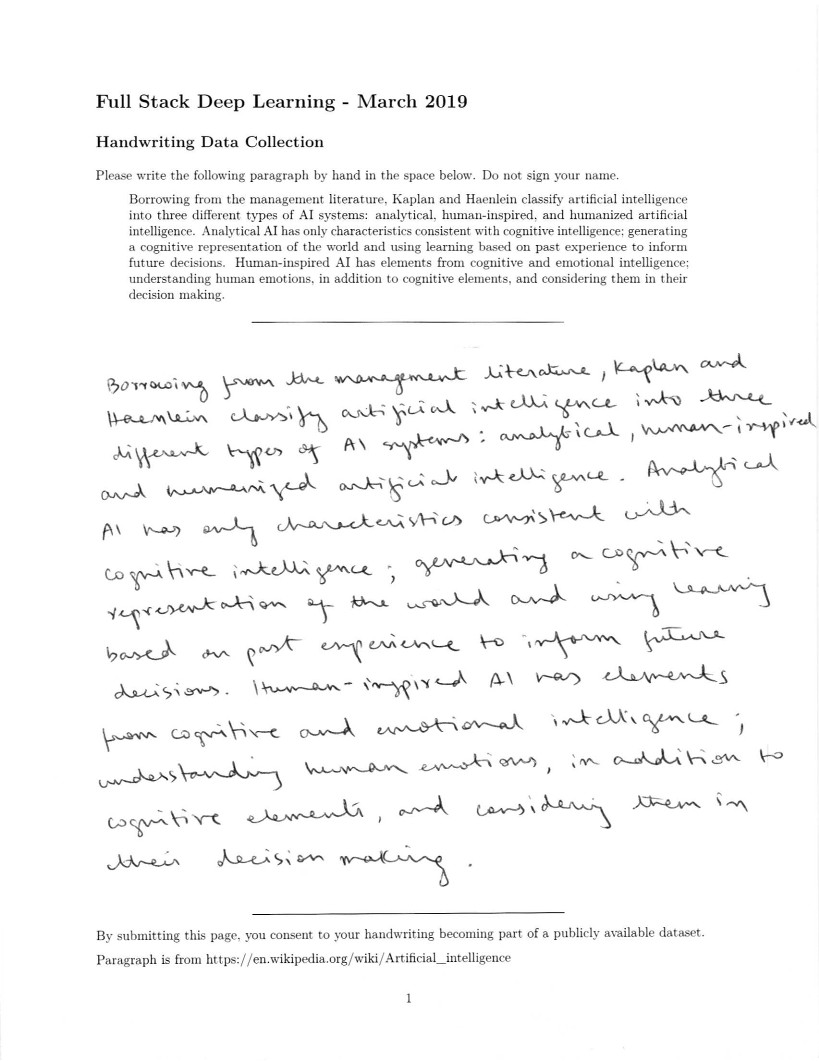 Full Stack Deep Learning - March 2019
Handwriting Data Collection
Please write the following paragraph by hand in the space below. Do not sign your name.
Borrowing from the management literature, Kaplan and Haenlein classify artificial intelligence
into three different types of AI systems: analytical, human-inspired, and humanized artificial
intelligence. Analytical AI has only characteristics consistent with cognitive intelligence; generating
a cognitive representation of the world and using learning based on past experience to inform
future decisions. Human-inspired AI has elements from cognitive and emotional intelligence;
understanding human emotions, in addition to cognitive elements, and considering them in their
decision making.
Borrowing from the management literature, Kaplan and
Haenlein classify artificial intelligence into three
different types of AI systems: analytical, human-inspired
and humanized artificial intelligence. Analytical
AI has only characteristics consistent with
cognitive intelligence; generating a cognitive
representation of the world and using learning
based on past experience to inform future
decisions. Human-inspired AI has elements
from cognitive and emotional intelligence;
understanding human emotions, in addition to
cognitive elements, and considering them in
their decision making.
By submitting this page, you consent to your handwriting becoming part of a publicly available dataset.
Paragraph is from https://en.wikipedia.org/wiki/Artificial_intelligence
1